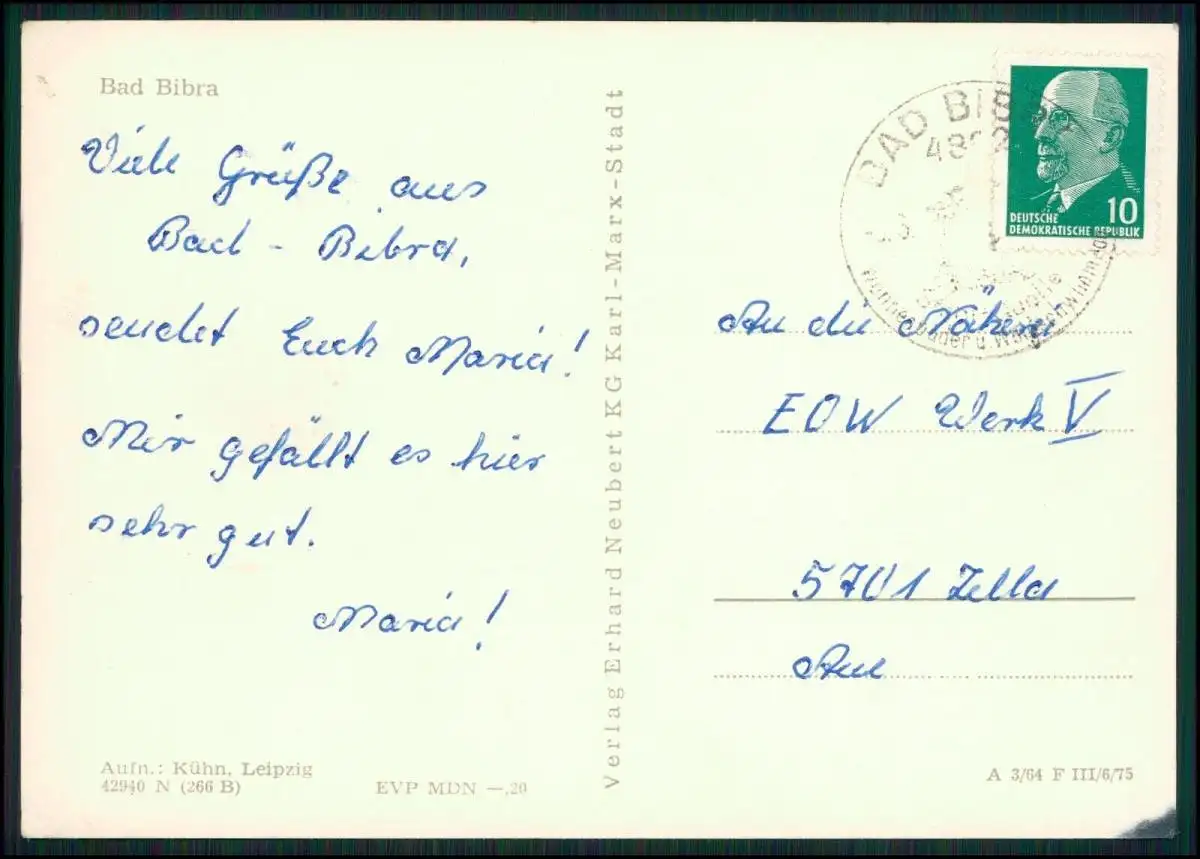 Bad Bibra
Viele Grüße aus
Bad - Bibra,
sendet Euch Maria!
Mir gefällt es hier
sehr gut.
Maria!
Aufn.: Kühn, Leipzig
42940 N (266 B)
EVP MDN —,20
Verlag Erhard Neubert KG Karl-Marx-Stadt
BAD BIBRA
DEUTSCHE
DEMOKRATISCHE REPUBLIK
10
An die Näherei
EOW Werk V
5701 Zella
Aue
A 3/64 F III/6/75